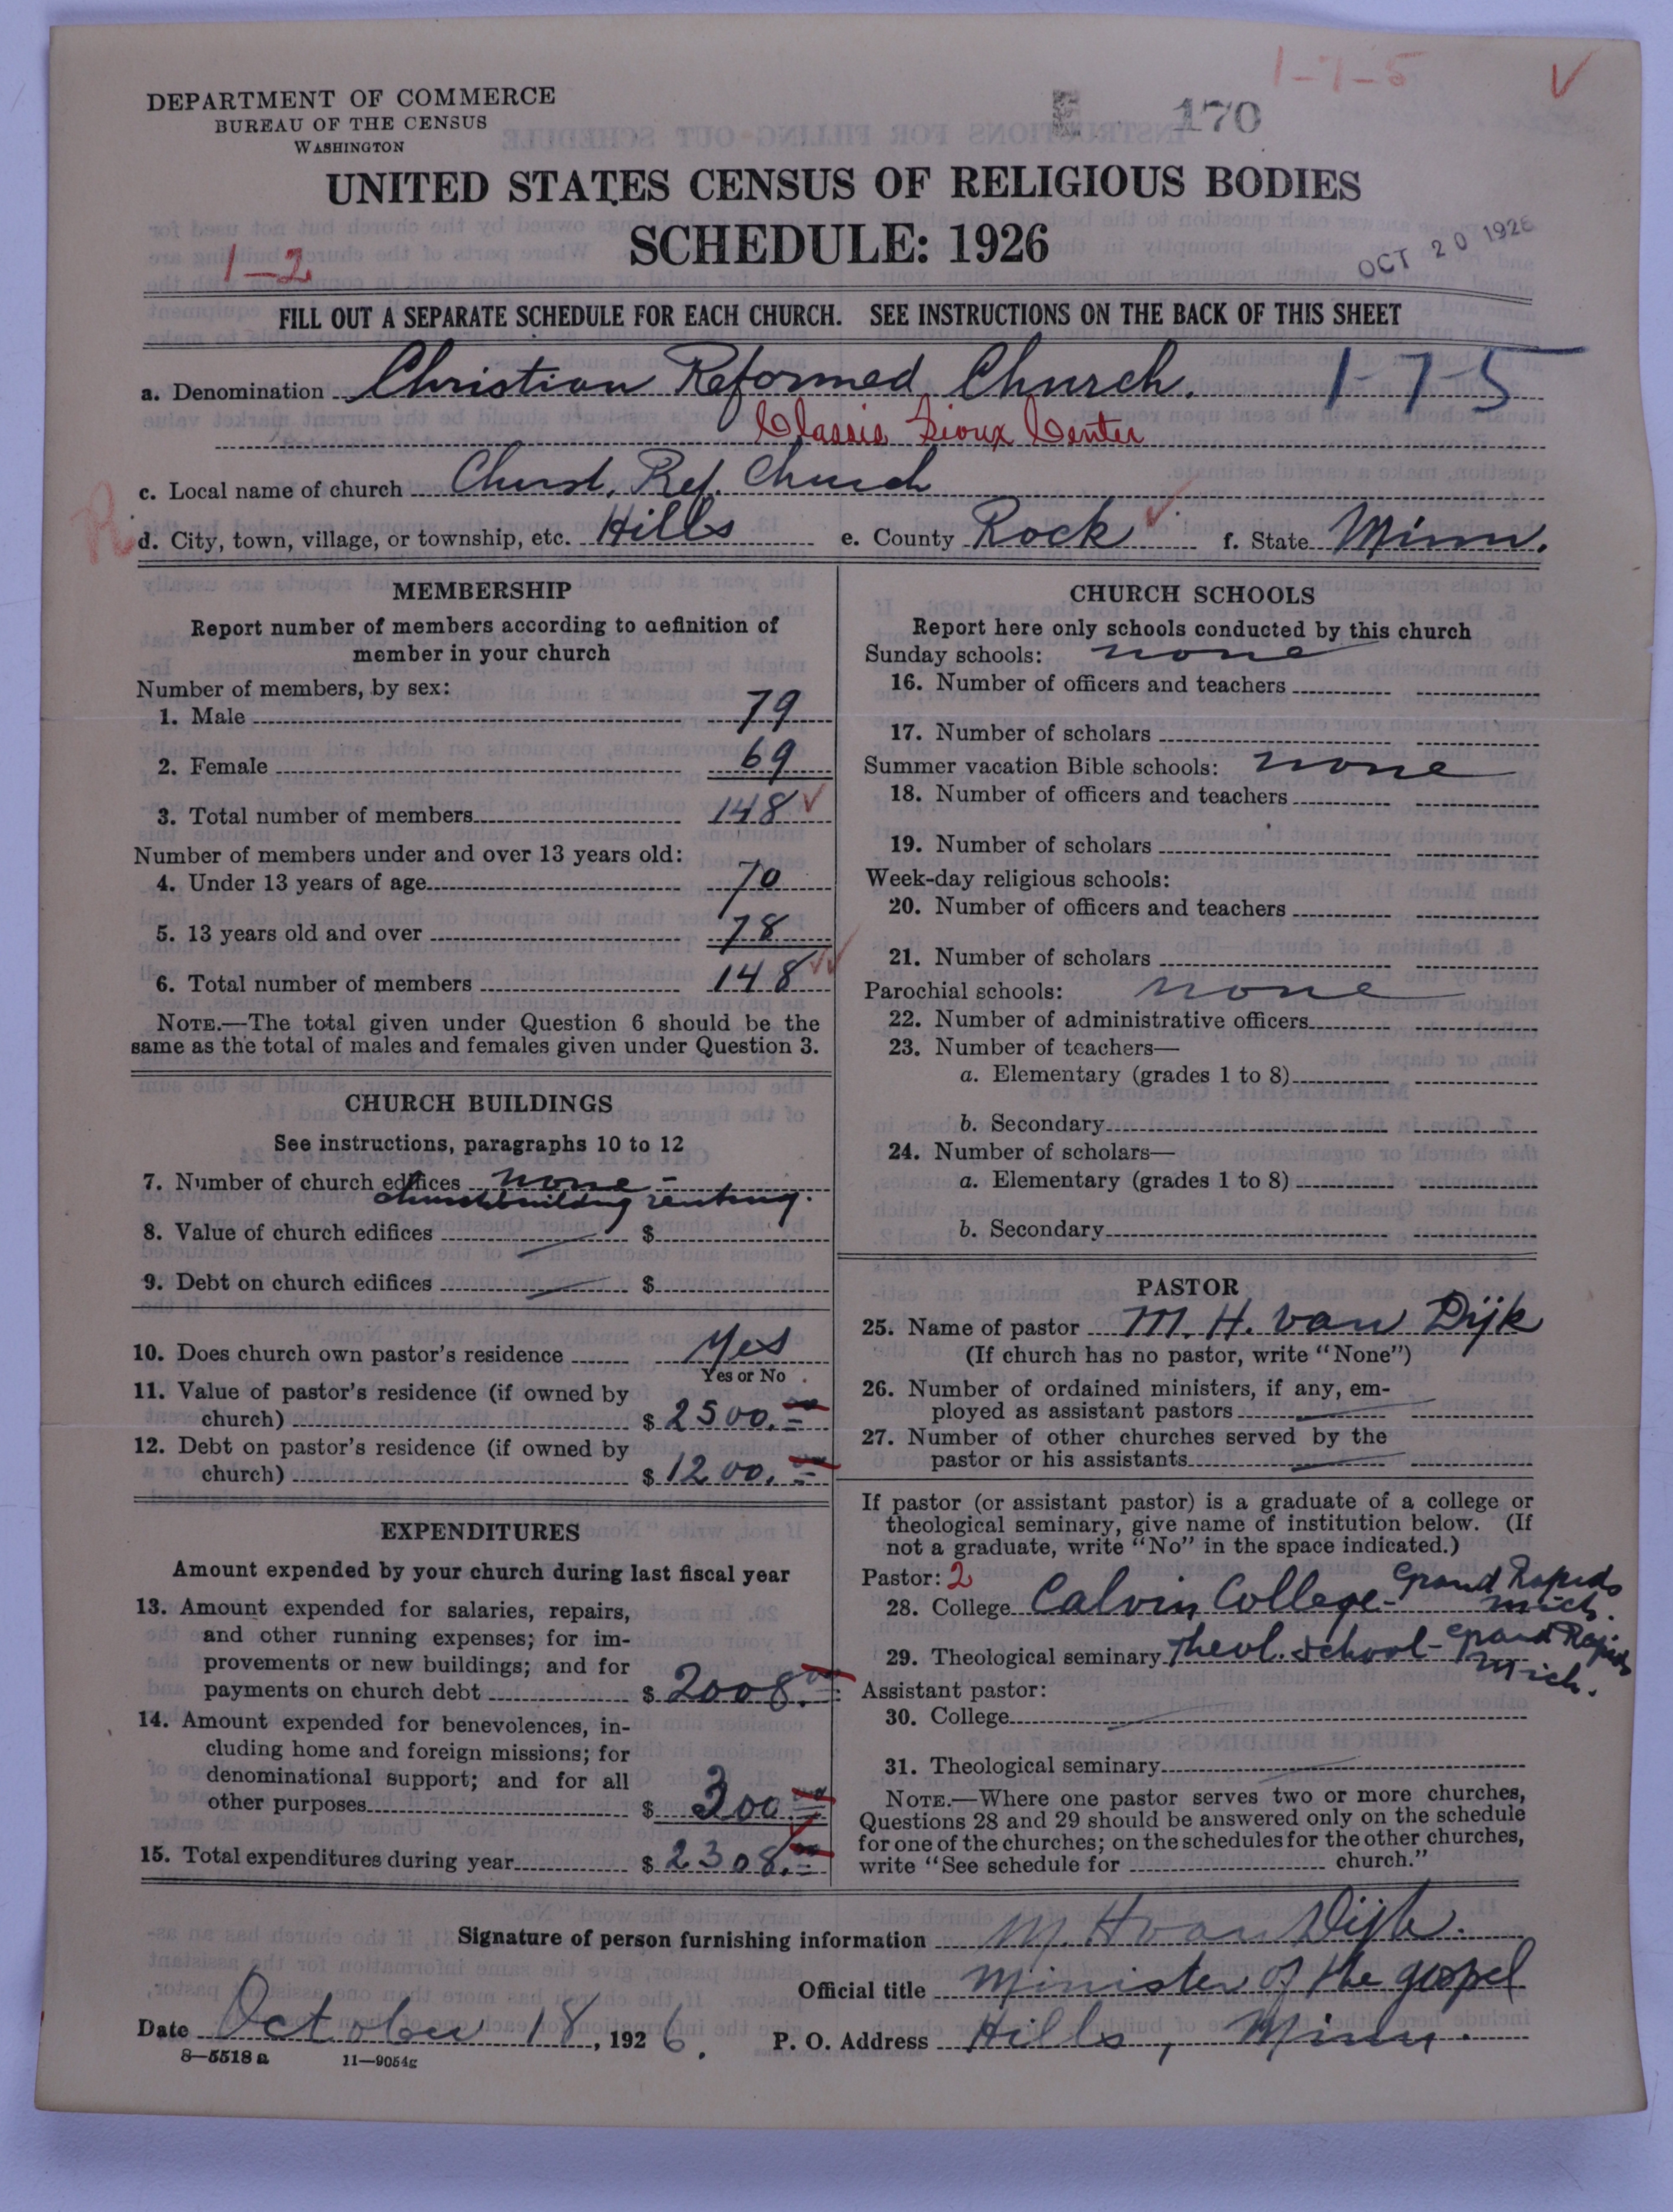 1-7-5
DEPARTMENT OF COMMERCE
BUREAU OF THE CENSUS
WASHINGTON
E 170
UNITED STATES CENSUS OF RELIGIOUS BODIES
SCHEDULE: 1926
1-2
OCT 20 1926
FILL OUT A SEPARATE SCHEDULE FOR EACH CHURCH. SEE INSTRUCTIONS ON THE BACK OF THIS SHEET
a. Denomination Christian Reformed Church. 1-7-5
Classis Sioux Center
c. Local name of church Christ. Ref. Church
R
d. City, town, village, or township, etc. Hills e. County Rock f. State Minn.
MEMBERSHIP
Report number of members according to definition of
member in your church
Number of members, by sex:
1. Male 79
2. Female 69
3. Total number of members 148
Number of members under and over 13 years old:
4. Under 13 years of age 70
5. 13 years old and over 78
6. Total number of members 148
NOTE.—The total given under Question 6 should be the
same as the total of males and females given under Question 3.
CHURCH BUILDINGS
See instructions, paragraphs 10 to 12
7. Number of church edifices none -
churchbuilding renting.
8. Value of church edifices $
9. Debt on church edifices $
10. Does church own pastor's residence Yes
Yes or No
11. Value of pastor's residence (if owned by
church) $ 2500.00
12. Debt on pastor's residence (if owned by
church) $ 1200.00
EXPENDITURES
Amount expended by your church during last fiscal year
13. Amount expended for salaries, repairs,
and other running expenses; for im-
provements or new buildings; and for
payments on church debt $ 2008.00
14. Amount expended for benevolences, in-
cluding home and foreign missions; for
denominational support; and for all
other purposes $ 300.00
15. Total expenditures during year $ 2308.00
CHURCH SCHOOLS
Report here only schools conducted by this church
Sunday schools: none
16. Number of officers and teachers
17. Number of scholars
Summer vacation Bible schools: none
18. Number of officers and teachers
19. Number of scholars
Week-day religious schools:
20. Number of officers and teachers
21. Number of scholars
Parochial schools: none
22. Number of administrative officers
23. Number of teachers—
a. Elementary (grades 1 to 8)
b. Secondary
24. Number of scholars—
a. Elementary (grades 1 to 8)
b. Secondary
PASTOR
25. Name of pastor M. H. van Dijk
(If church has no pastor, write "None")
26. Number of ordained ministers, if any, em-
ployed as assistant pastors
27. Number of other churches served by the
pastor or his assistants
If pastor (or assistant pastor) is a graduate of a college or
theological seminary, give name of institution below. (If
not a graduate, write "No" in the space indicated.)
Pastor: 2
28. College Calvin College - Grand Rapids
Mich.
29. Theological seminary Theol. School - Grand Rapids
Mich.
Assistant pastor:
30. College
31. Theological seminary
NOTE.—Where one pastor serves two or more churches,
Questions 28 and 29 should be answered only on the schedule
for one of the churches; on the schedules for the other churches,
write "See schedule for church."
Signature of person furnishing information M. H van Dijk.
Official title Minister of the gospel
Date October 18, 1926. P. O. Address Hills, Minn.
8-5518 a 11-9054g